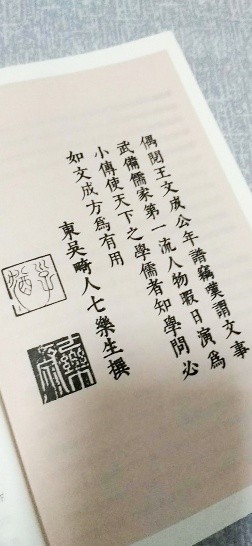 偶閱王文成公年譜竊嘆謂文事
武備儒家第一流人物暇日演為
小傳使天下之學儒者知學問必
如文成方為有用
東吳畸人七樂生撰
子猶
七樂齋